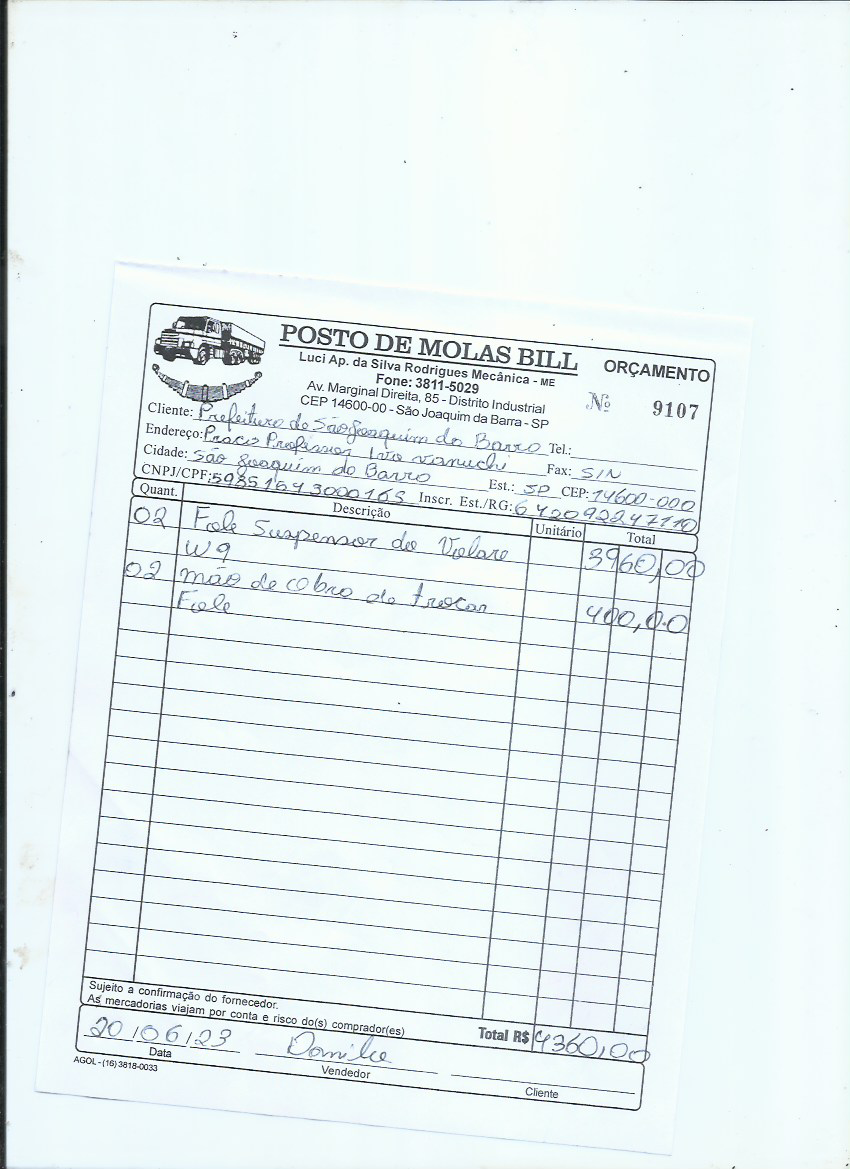 POSTO DE MOLAS BILL
ORÇAMENTO
Luci Ap. da Silva Rodrigues Mecânica - ME
Fone: 3811-5029
Av. Marginal Direita, 85 - Distrito Industrial
CEP 14600-00 - São Joaquim da Barra - SP
Nº 9107
Cliente: Prefeitura de São Joaquim da Barra Tel.:
Endereço: Praça Professor Ivo Vanuchi Fax: S/N
Cidade: São Joaquim da Barra Est.: SP CEP: 14600-000
CNPJ/CPF: Inscr. Est./RG: 642092247110
Quant. Descrição Unitário Total
02 Fole Suspensor do Volare 3960,00
W9
02 mão de obra de trocar
Fole 400,00
Sujeito a confirmação do fornecedor.
As mercadorias viajam por conta e risco do(s) comprador(es)
Total R$ 4360,00
20/06/23 Danilo
Data Vendedor Cliente
AGOL - (16) 3818-0033